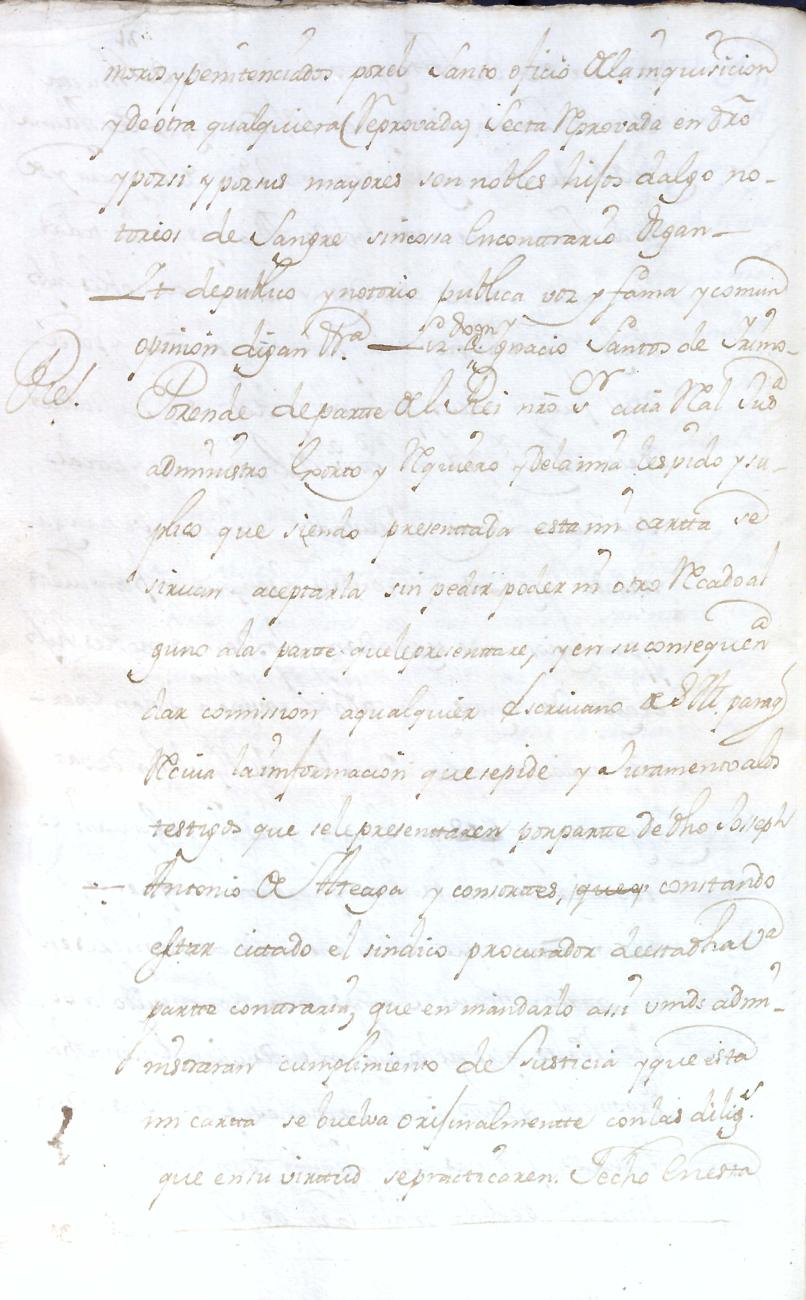 moros y penitenciados por el Santo oficio de la inquisicion
y de otra qualquiera (Reprovada) Secta Reprovada en dro
y por si y por sus mayores son nobles hijos dalgo no-
torios de Sangre sin cossa en contrario digan—
It de publico y notorio publica voz y fama y comun
opinion digan &ra — Lizdo Dn Ygnacio Santos de
Porende de parte del Rei nro sor cuia Real Jusa
administro exorto y Requiero y de la mia les pido y su-
plico que siendo presentada esta mi cartta se
sirvan aceptarla sin pedir poder ni otro Recado al
guno a la partte que le presenttare, y en su consequena
dar comission a qualquier escrivano de S M. para q
Reciva la informacion que se pide y Juramento a los
testigos que se le presenttaren por partte de dho Joseph
Antonio de Alteaga y consortes, que q constando
estar cittado el sindico procurador de esta dha Va
partte conttraria, que en mandarlo assi vmds admi-
nistraran cumplimiento de Justicia y que esta
mi cartta se buelva orijinalmentte con las diligs.
que en su virttud se practicaren. Fecho en esta